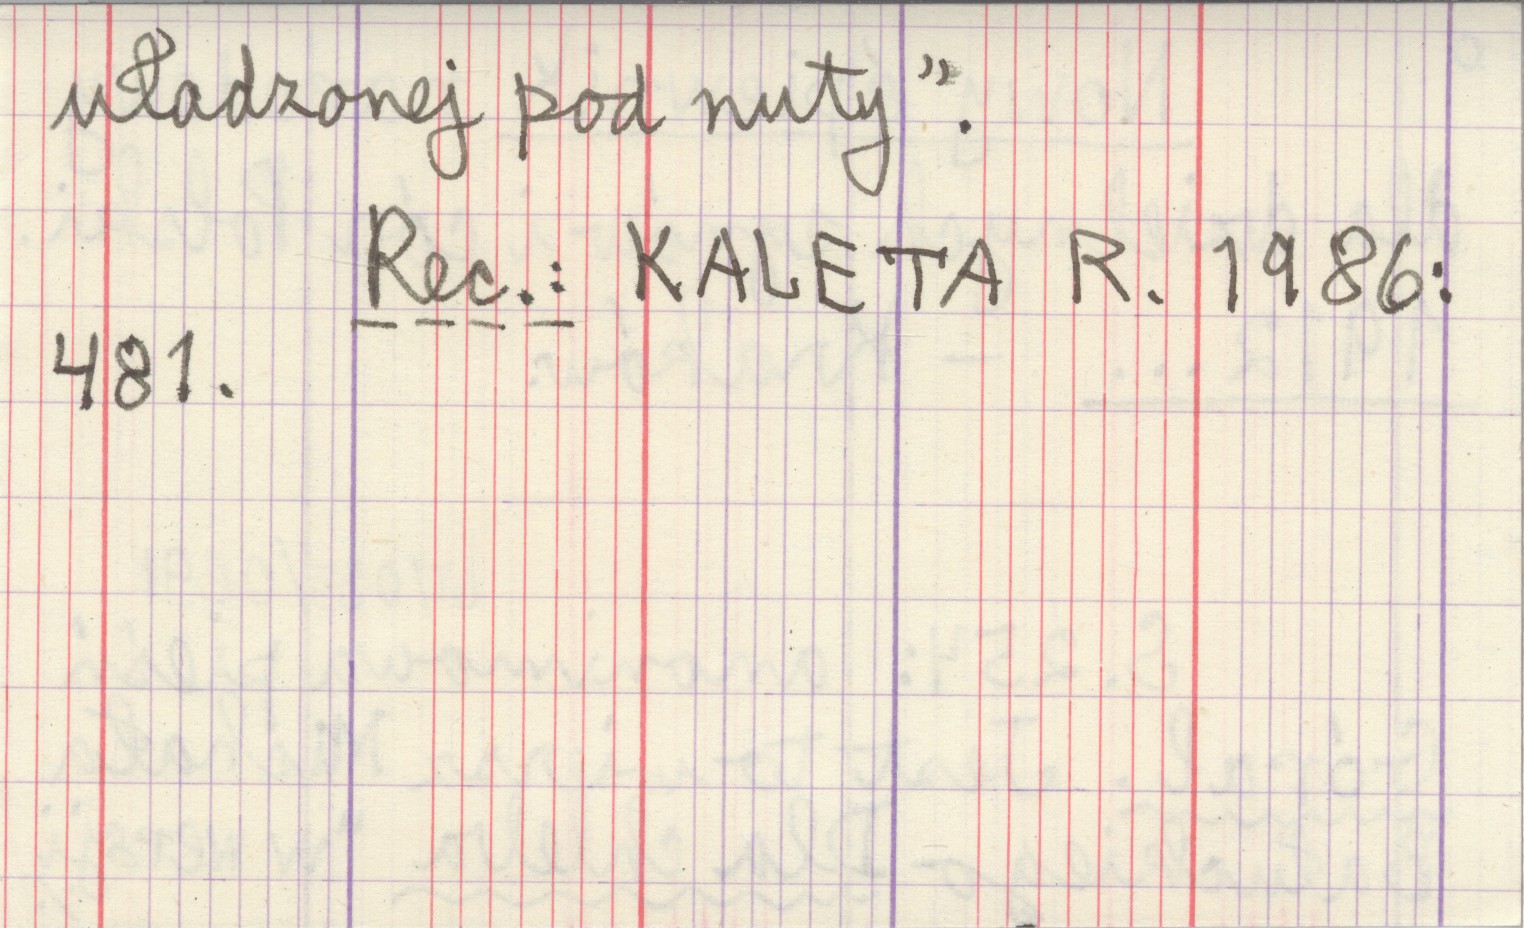 uładzonej pod nuty”.
Rec.: KALETA R. 1986:
481.